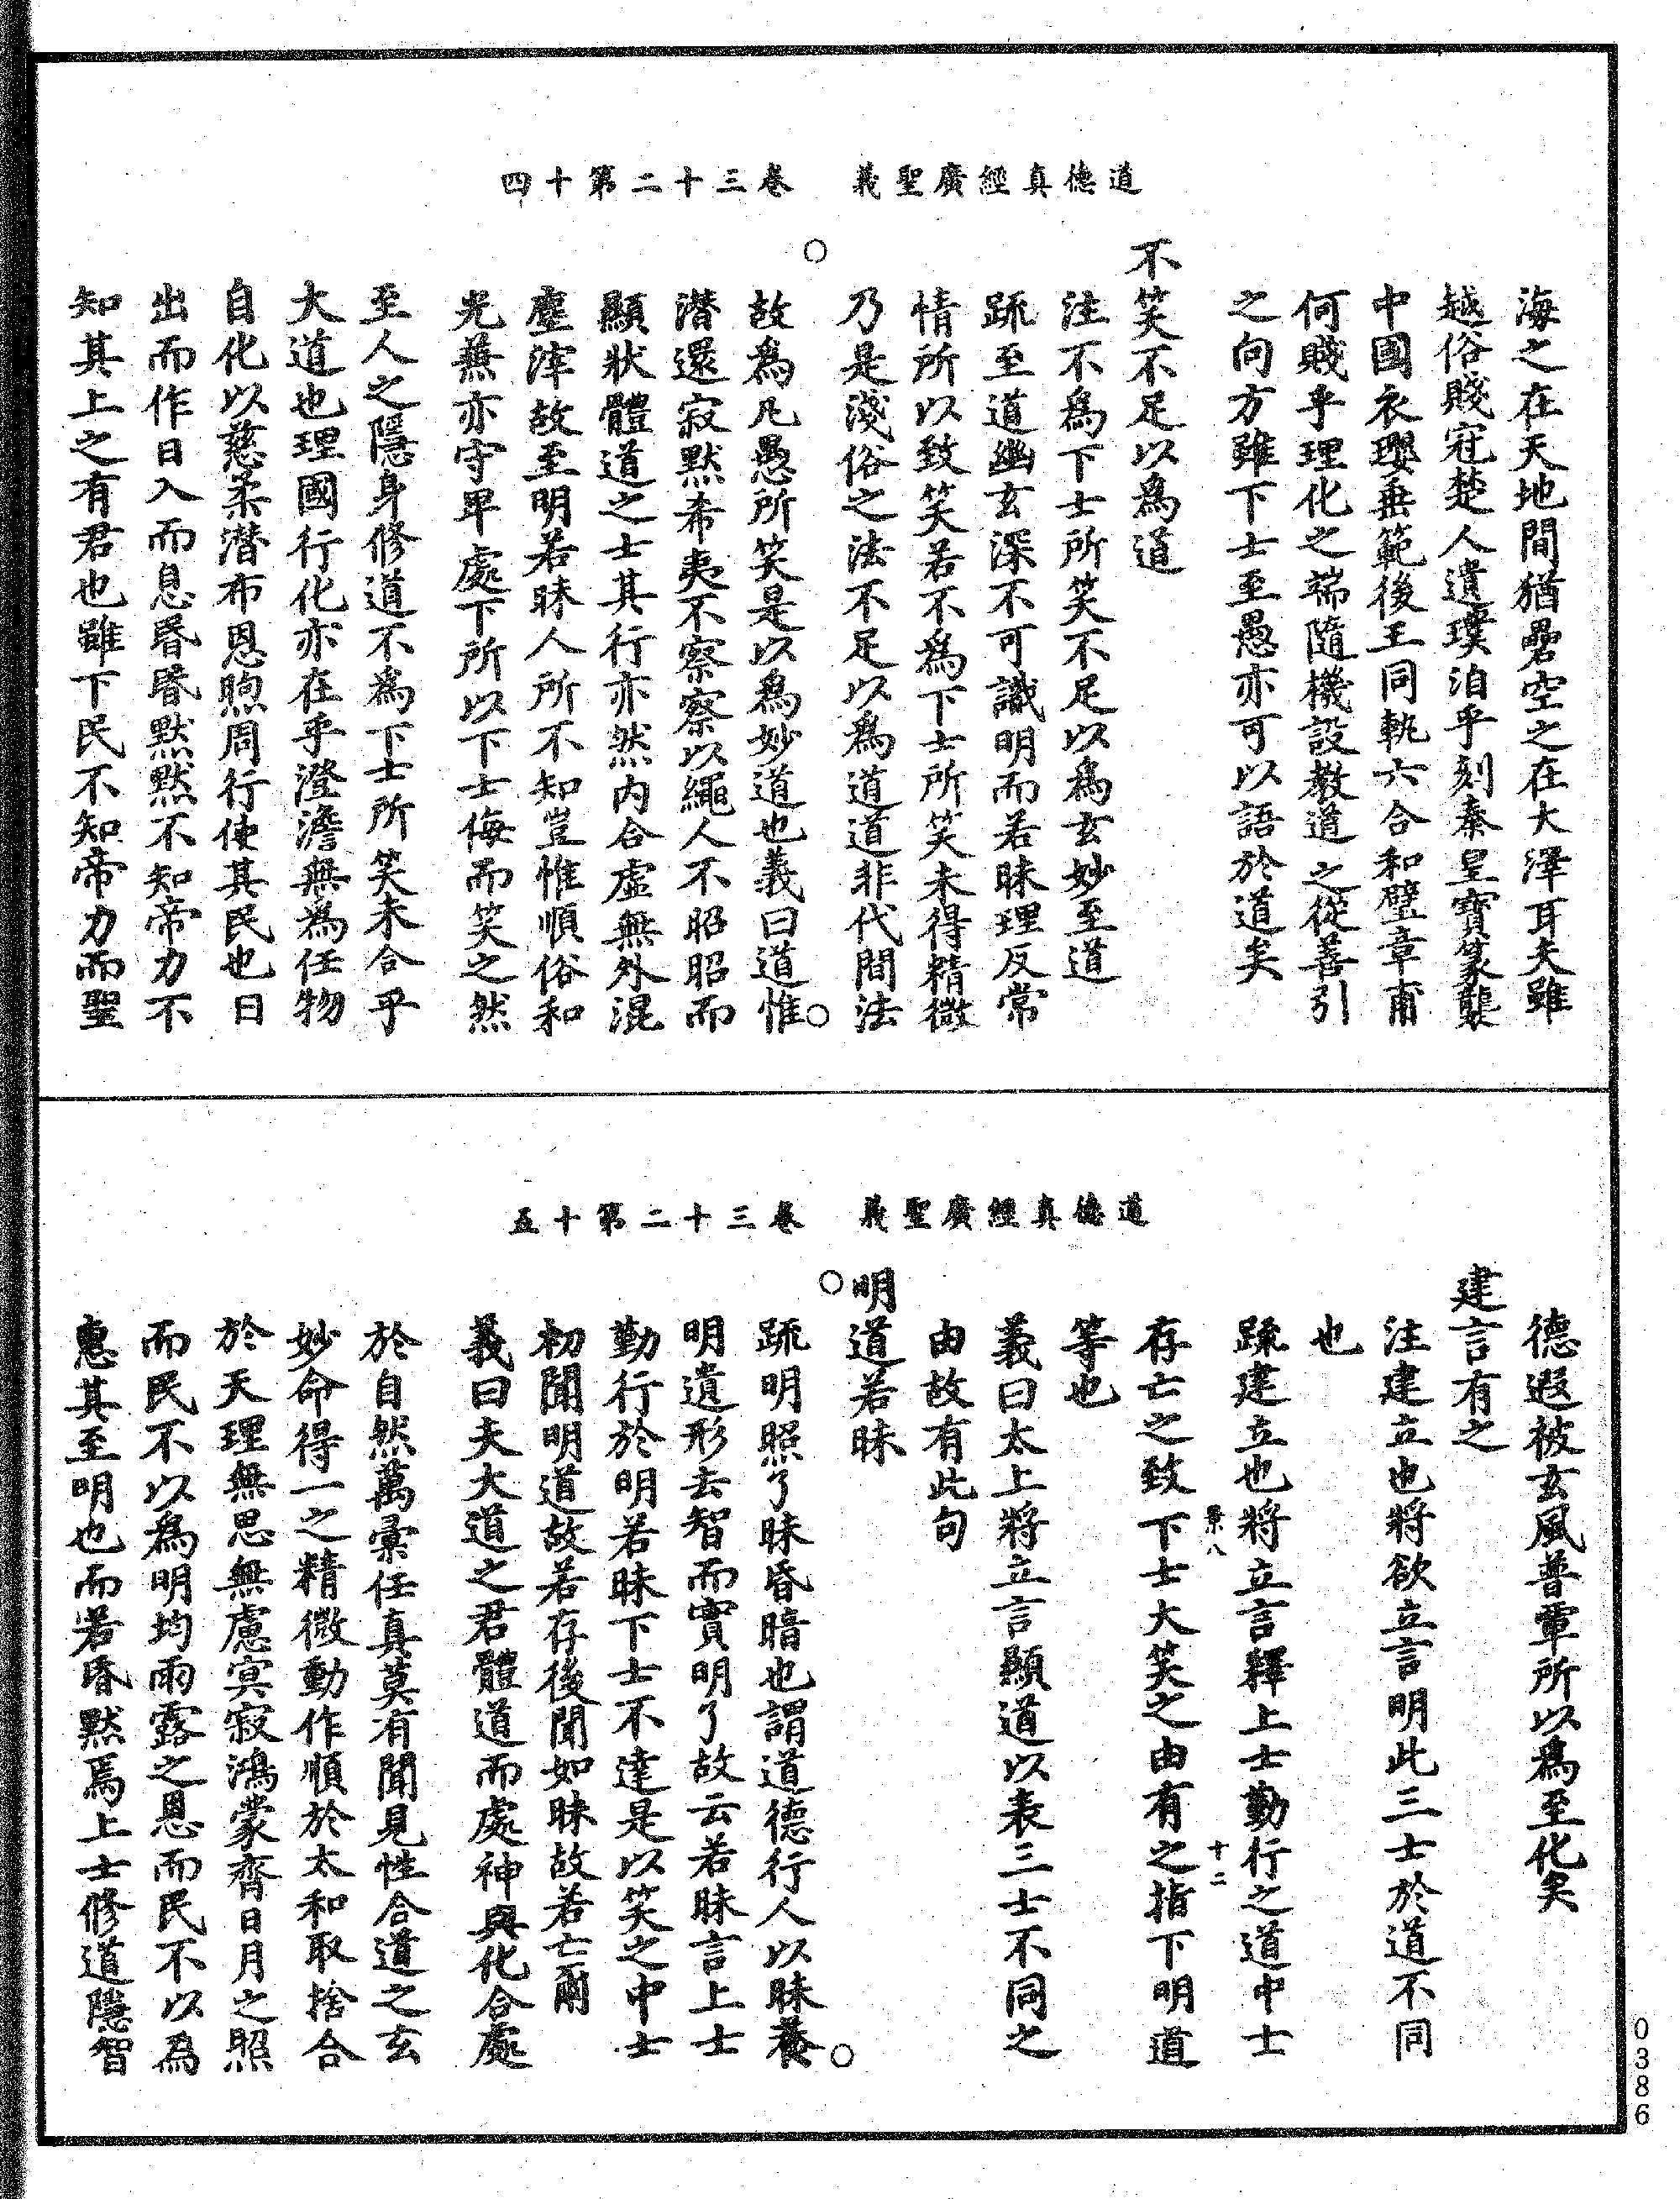 道德真經廣聖義　卷三十二第十四
海之在天地間猶礨空之在大澤耳夫雖
越俗賤冠楚人遺璞洎乎刻秦皇寶篆襲
中國衣瓔垂範後王同軌六合和璧章甫
何賤乎理化之端隨機設教道之從善引
之向方雖下士至愚亦可以語於道矣
不笑不足以為道
注不為下士所笑不足以為玄妙至道
疏至道幽玄深不可識明而若昧理反常
情所以致笑若不為下士所笑未得精微
乃是淺俗之法不足以為道道非代間法
故為凡愚所笑是以為妙道也義曰道惟
潛還寂默希夷不察察以繩人不昭昭而
顯狀體道之士其行亦然內合虛無外混
塵滓故至明若昧人所不知豈惟順俗和
光蕪亦守卑處下所以下士侮而笑之然
至人之隱身修道不為下士所笑未合乎
大道也理國行化亦在乎澄澹無為任物
自化以慈柔潛布恩煦周行使其民也日
出而作日入而息昏昏默默不知帝力不
知其上之有君也雖下民不知帝力而聖
道德真經廣聖義　卷三十二第十五
德遐被玄風普覃所以為至化矣
建言有之
注建立也將欲立言明此三士於道不同
也
疏建立也將立言釋上士勤行之道中士
存亡之致下士大笑之由有之指下明道
等也
義曰太上將立言顯道以表三士不同之
由故有此句
明道若昧
疏明照了昧昏暗也謂道德行人以昧養
明遺形去智而實明了故云若昧言上士
勤行於明若昧下士不達是以笑之中士
初聞明道故若存後聞如昧故若亡爾
義曰夫大道之君體道而處神與化合處
於自然萬彙任真莫有聞見性合道之玄
妙命得一之精微動作順於太和取捨合
於天理無思無慮冥寂鴻蒙齊日月之照
而民不以為明均雨露之恩而民不以為
惠其至明也而若昏默焉上士修道隱智
𢍰八
十二
0386